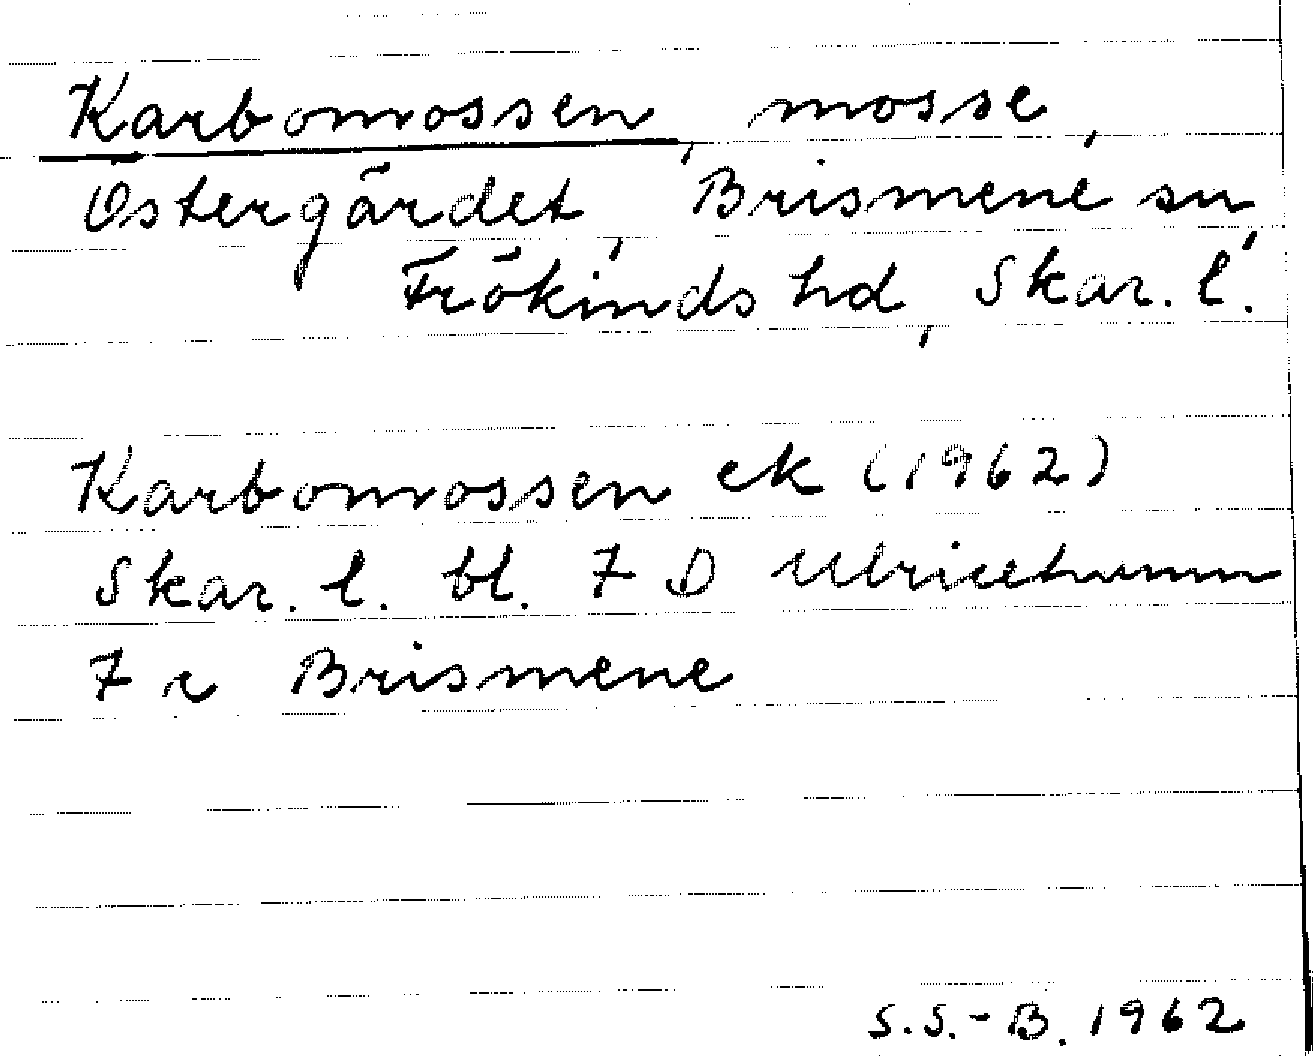 Karbomossen, mosse,
Östergärdet, Brismene sn,
Frökinds hd, Skar. l.
Karbomossen ek (1962)
Skar. l. bl. 7 D Ulricehamn
7 c Brismene
S.S.-B. 1962